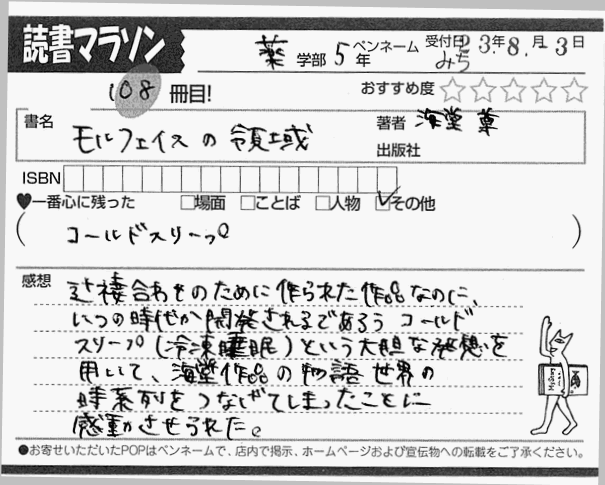 読書マラソン
薬 学部 5年 ペンネーム みち 受付日 23年 8月 3日
108 冊目! おすすめ度 ☆☆☆☆☆
書名 モルフェイスの領域 著者 海堂 尊
出版社
ISBN
♥一番心に残った □場面 □ことば □人物 ☑その他
( コールドスリープ )
感想 辻褄合わせのために作られた作品なのに、
いつの時代か開発されるであろう コールド
スリープ(冷凍睡眠)という大胆な発想を
用いて、海堂作品の物語世界の
時系列をつなげてしまったことに
感動させられた。
●お寄せいただいたPOPはペンネームで、店内で掲示、ホームページおよび宣伝物への転載をご了承ください。